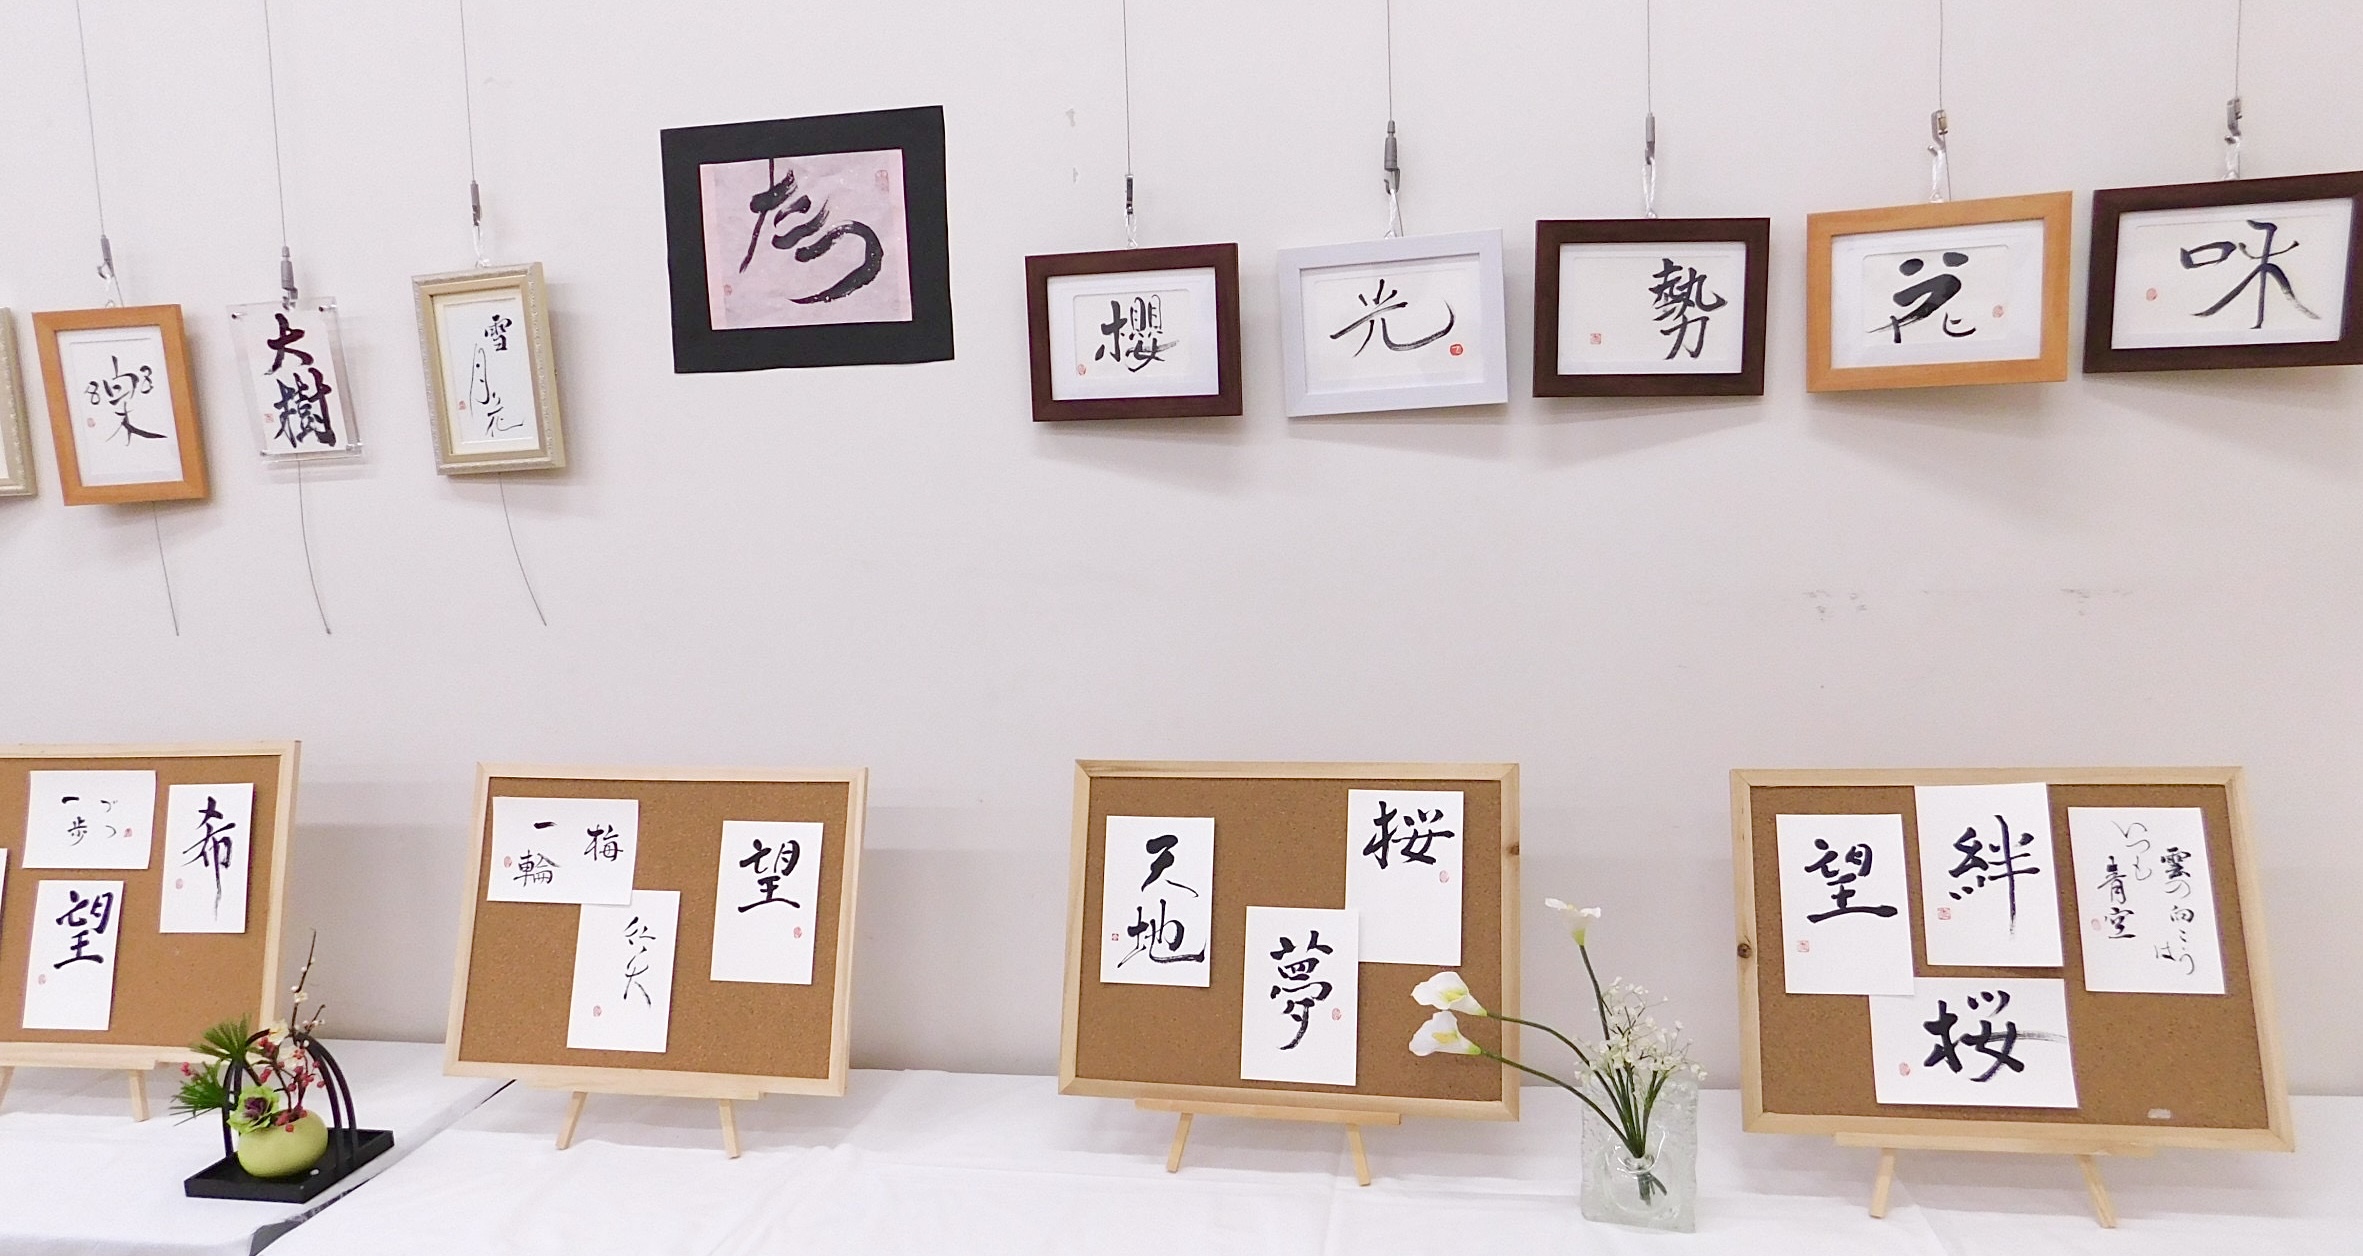 樂
大樹
雪
月花
櫻
光
勢
花
咊
一歩
づつ
希
望
梅
一輪
望
天地
桜
夢
望
絆
雲の向こうは
いつも
青空
桜